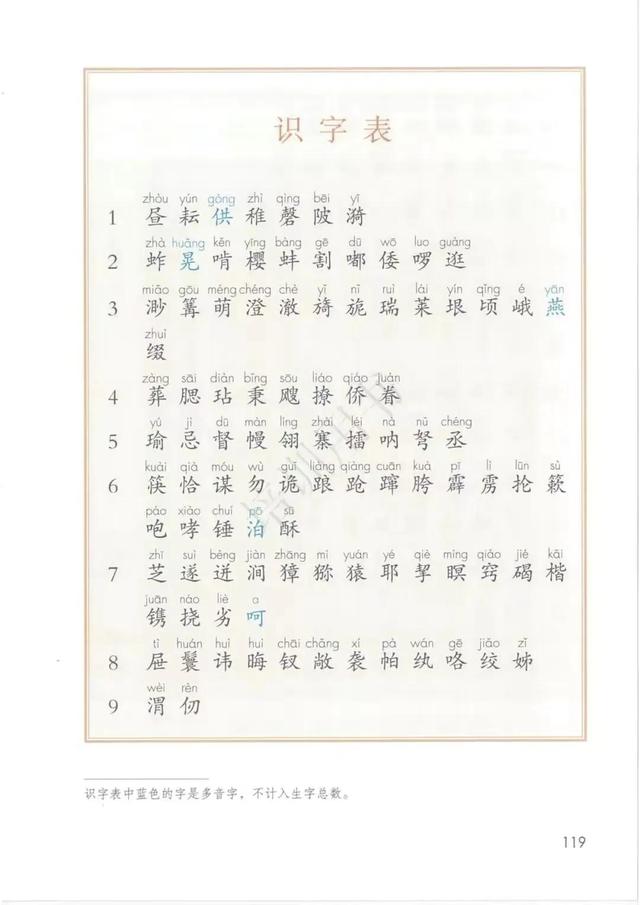 识字表
zhòu yún gòng zhì qìng bēi yī
1 昼 耘 供 稚 磬 陂 漪
zhà huàng kěn yīng bàng gē dū wō luo guàng
2 蚱 晃 啃 樱 蚌 割 嘟 倭 啰 逛
miǎo gōu méng chéng chè yǐ nǐ ruì lái yín qǐng é yān
3 渺 篝 萌 澄 澈 旖 旎 瑞 莱 垠 顷 峨 燕
zhuì
缀
zàng sāi diàn bǐng sōu liáo qiáo juàn
4 葬 腮 玷 秉 飕 撩 侨 眷
yú jì dū màn líng zhài léi nà nǔ chéng
5 瑜 忌 督 幔 翎 寨 擂 呐 弩 丞
kuài qià móu wù guǐ liàng qiàng cuān kuà pī lì lūn sù
6 筷 恰 谋 勿 诡 踉 跄 蹿 胯 霹 雳 抡 簌
páo xiào chuí pō sū
咆 哮 锤 泊 酥
zhī suì bèng jiàn zhāng mí yuán yé qiè míng qiào jié kǎi
7 芝 遂 迸 涧 獐 猕 猿 耶 挈 暝 窍 碣 楷
juān náo liè a
镌 挠 劣 呵
tì huán huì huì chāi chǎng xí pà wán gē jiǎo zǐ
8 屉 鬟 讳 晦 钗 敞 袭 帕 纨 咯 绞 姊
wèi rèn
9 渭 仞
识字表中蓝色的字是多音字，不计入生字总数。
119